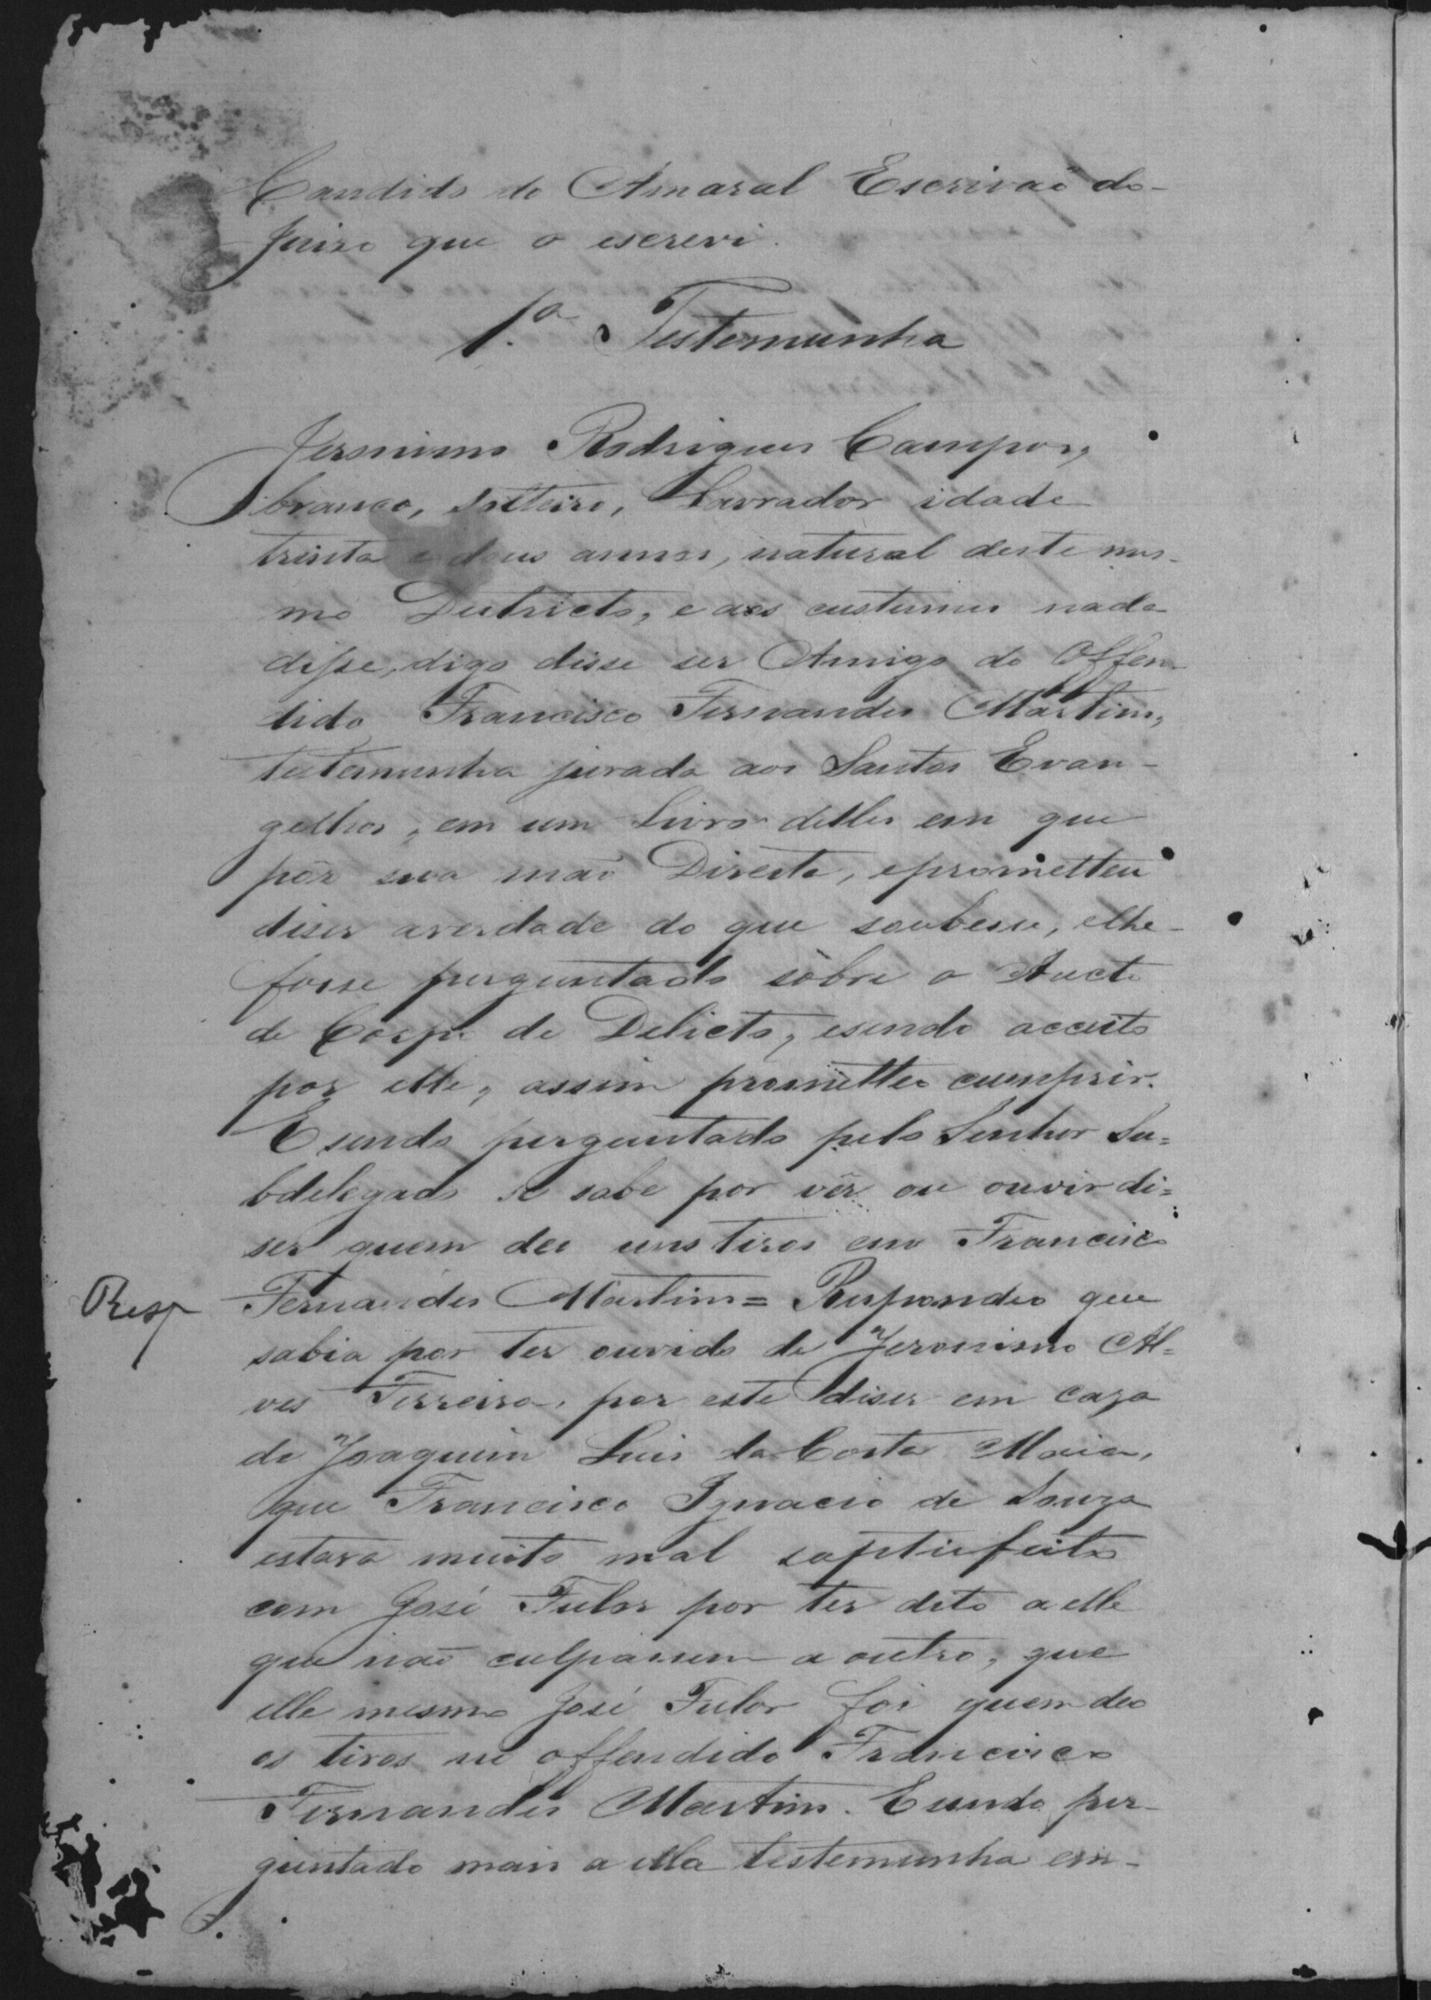 Candido do Amaral Escrivaõ do-
Juizo que o escrevi.
1.ª Testemunha
Jeronimo Rodrigues Campos,
branco, solteiro, Lavrador idade
trinta e dous annos, natural deste mes-
mo Districto, e aos custumes nada
disse, digo disse ser Amigo do Offen-
dido Francisco Fernandes Martins,
testemunha jurada aos Santos Evan-
gelhos, em um Livro delles em que
pôr sua maõ Direita, eprometteu
diser averdade do que soubesse, elhe-
fosse perguntado sobre o Aucto
de Corpo de Delicto, esendo acceito
por elle, assim prometteo cumprir.
Esendo perguntado pelo Senhor Su=
bdelegado se sabe por vêr ou ouvir di=
ser quem deo uns tiros em Francisco
Resp Fernandes Martins= Respondeo que
sabia por ter ouvido de Jeronimo Al=
ves Ferreira, por este diser em caza
de Joaquim Luis da Costa Maia,
que Francisco Ignacio de Souza
estava muito mal saptisfeito
com José Tulor por ter dito a elle
que naõ culpassem a outro, que
elle mesmo José Tulor foi quem deo
os tiros no offendido Francisco
Fernandes Martins. Esendo per-
guntado mais a ella testemunha em-